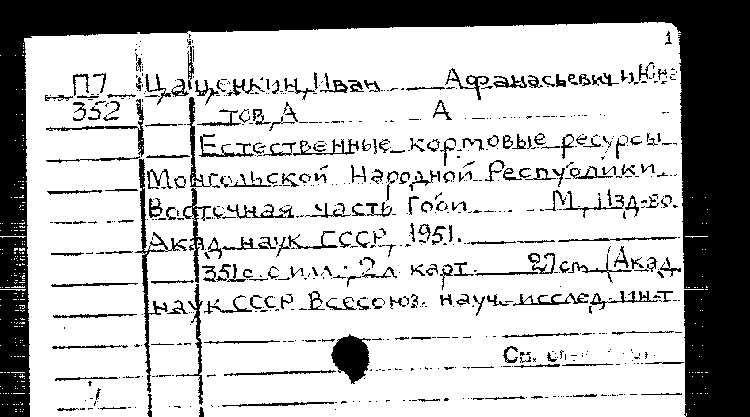 1
П7 Цаценкин, Иван Афанасьевич и Юна
352 тов, А А
Естественные кормовые ресурсы
Монгольской Народной Республики.
Восточная часть Гоби. М, Изд-во.
Акад. наук СССР, 1951.
351 с. с илл.; 2 л карт. 27 cm. (Акад.
наук СССР. Всесоюз. науч.-исслед. ин-т
См.